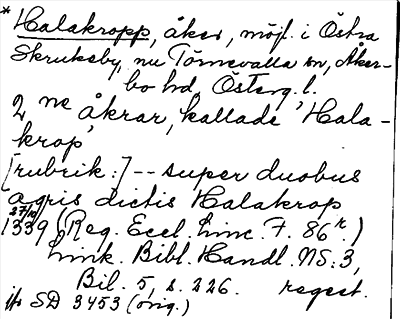 * Halakropp, åker, möjl. i Östra
Skrukeby, nu Törnevalla sn, Åker-
bo hd, Österg. l.
2 ne åkrar, kallade 'Hala-
krop'
[rubrik:] -- super duobus
agris dictis Halakrop
27/12
1339 (Reg. Eccl. Linc. F. 86 r.)
Link. Bibl. Handl. NS: 3,
Bil. 5, s. 226. regest.
SD 3453 (orig.)